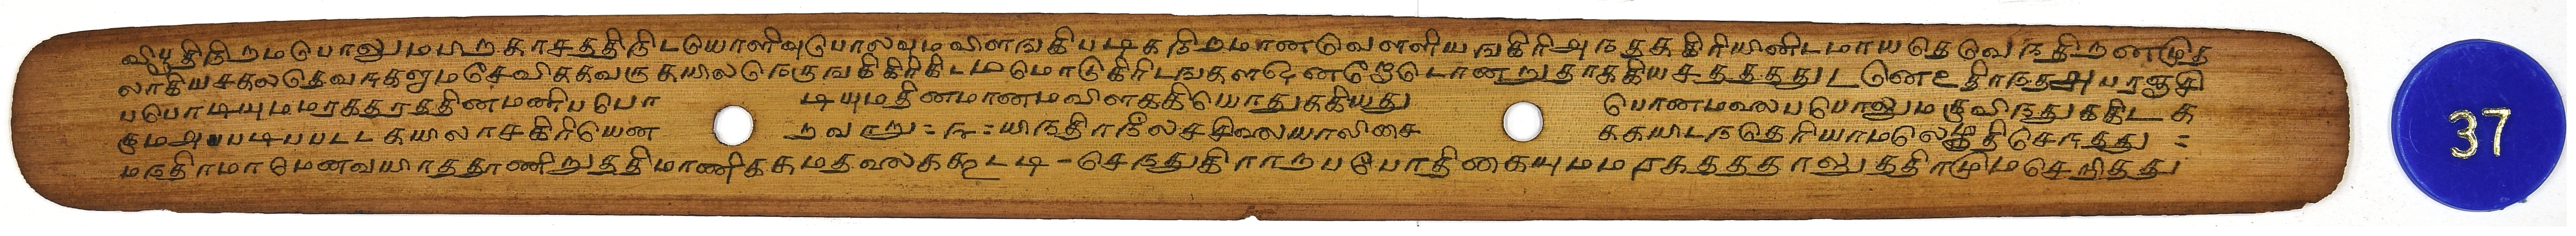 விபூதிநிறமபொலுமமிறகாசததிநிடடயாளிவுபொலவுமவிளஙகிபடிகநிறமானவெளளியஙகிரிஅநதககிரியினிடமாயதெவெநதிறனமுத
லாகியசகலதெவசுகளுமசேவிககவருகயிலநெருஙகிகிரிகிடமமொடுகிரிடஙகளஒனறோடொனறுதாககியசததததுடனெஉதிரநதஅபரஞசி
பபொடியுமமரகதரததினமணிபபொ டியுமதினமானமவிளககியொதுககியது பொனமலைபபொலுமகுவிநதுககிடக
குமஅபபடிபபடடகயிலாசகிரியென றவாறு = ௩ = யிநதிரநீலசசிலையாலிசை ககயிடநதெரியாமலெததிசெரதது =
மநதிரமாமெனவயிரததூணிறுததிமாணிககமதலைககூடடி - செநதுகிராறபபோதிகையுமமரகதததாலுததிரமுமசெறிதது
37